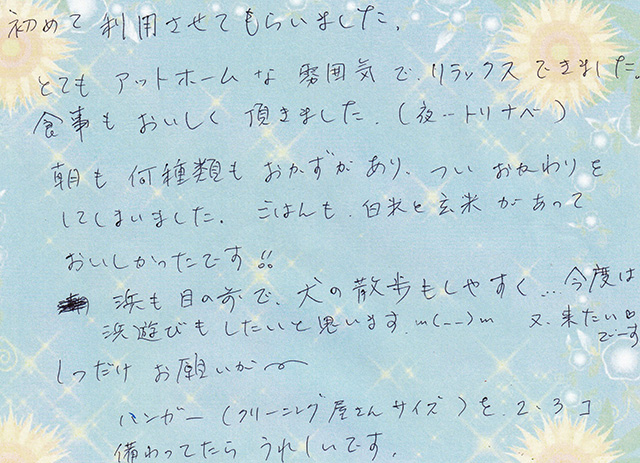 初めて利用させてもらいました。
とてもアットホームな雰囲気で、リラックスできました。
食事もおいしく頂きました。(夜…トリナベ)
朝も何種類もおかずがあり、ついおかわりを
してしまいました。ごはんも、白米と玄米があって
おいしかったです!!
浜も目の前で、犬の散歩もしやすく…今度は
浜遊びもしたいと思います。m(__)m 又、来たい♡
でーす
1つだけお願いが〜
ハンガー(クリーニング屋さんサイズ)を、2、3コ
備わってたらうれしいです。